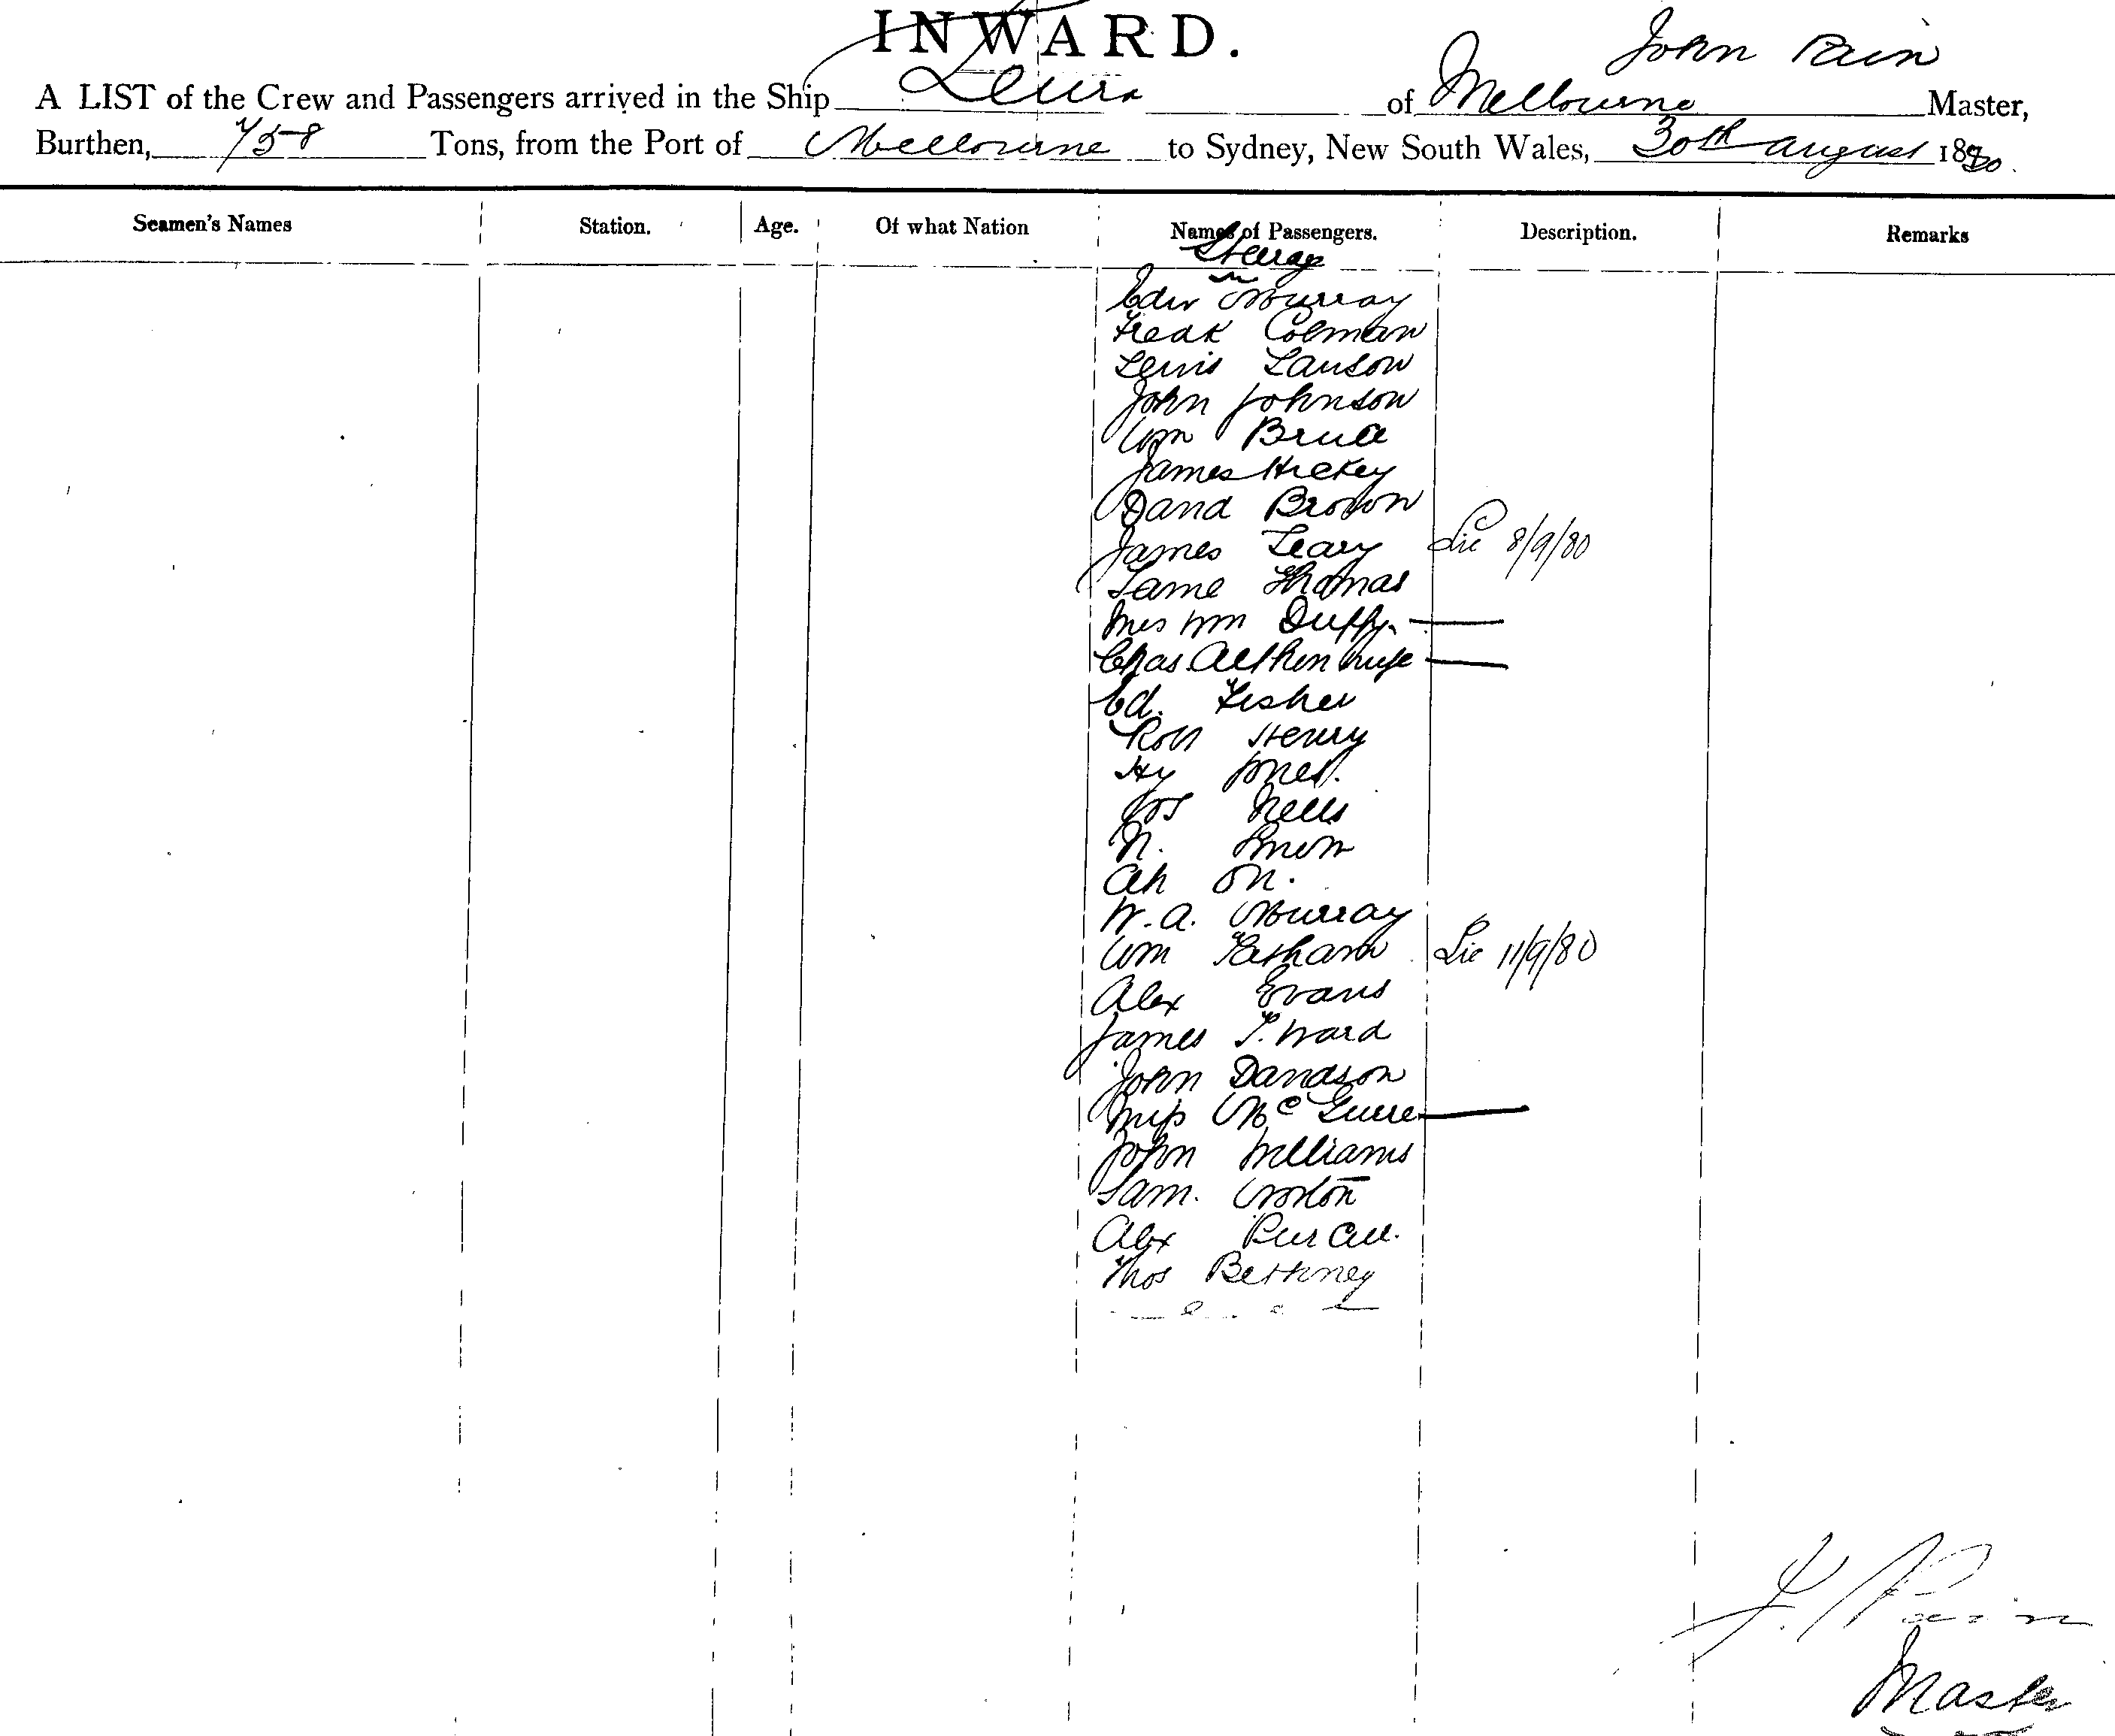 INWARD.
John Pain
A LIST of the Crew and Passengers arrived in the Ship Leura of Melbourne Master,
Burthen, 758 Tons, from the Port of Melbourne to Sydney, New South Wales, 30th August 1880.
Seamen's Names Station. Age. Of what Nation Names of Passengers. Description. Remarks
Steerage
Edw Murray
Fredk Colman
Lewis Lawson
John Johnson
Wm Bruce
James Hickey
David Brown
James Leary Lic 8/9/80
Thomas
Mrs Wm Duffy
Chas Aitken wife
Ed. Fisher
Robt Henry
Hy Jones.
Jos
N.
Ah On.
W. A. Murray
Wm Lic 11/9/80
Alex Evans
James T. Ward
John Davidson
Miss McGuire
John Williams
Sam.
Alex Purcell.
Thos Bethney
J. Pain
Master